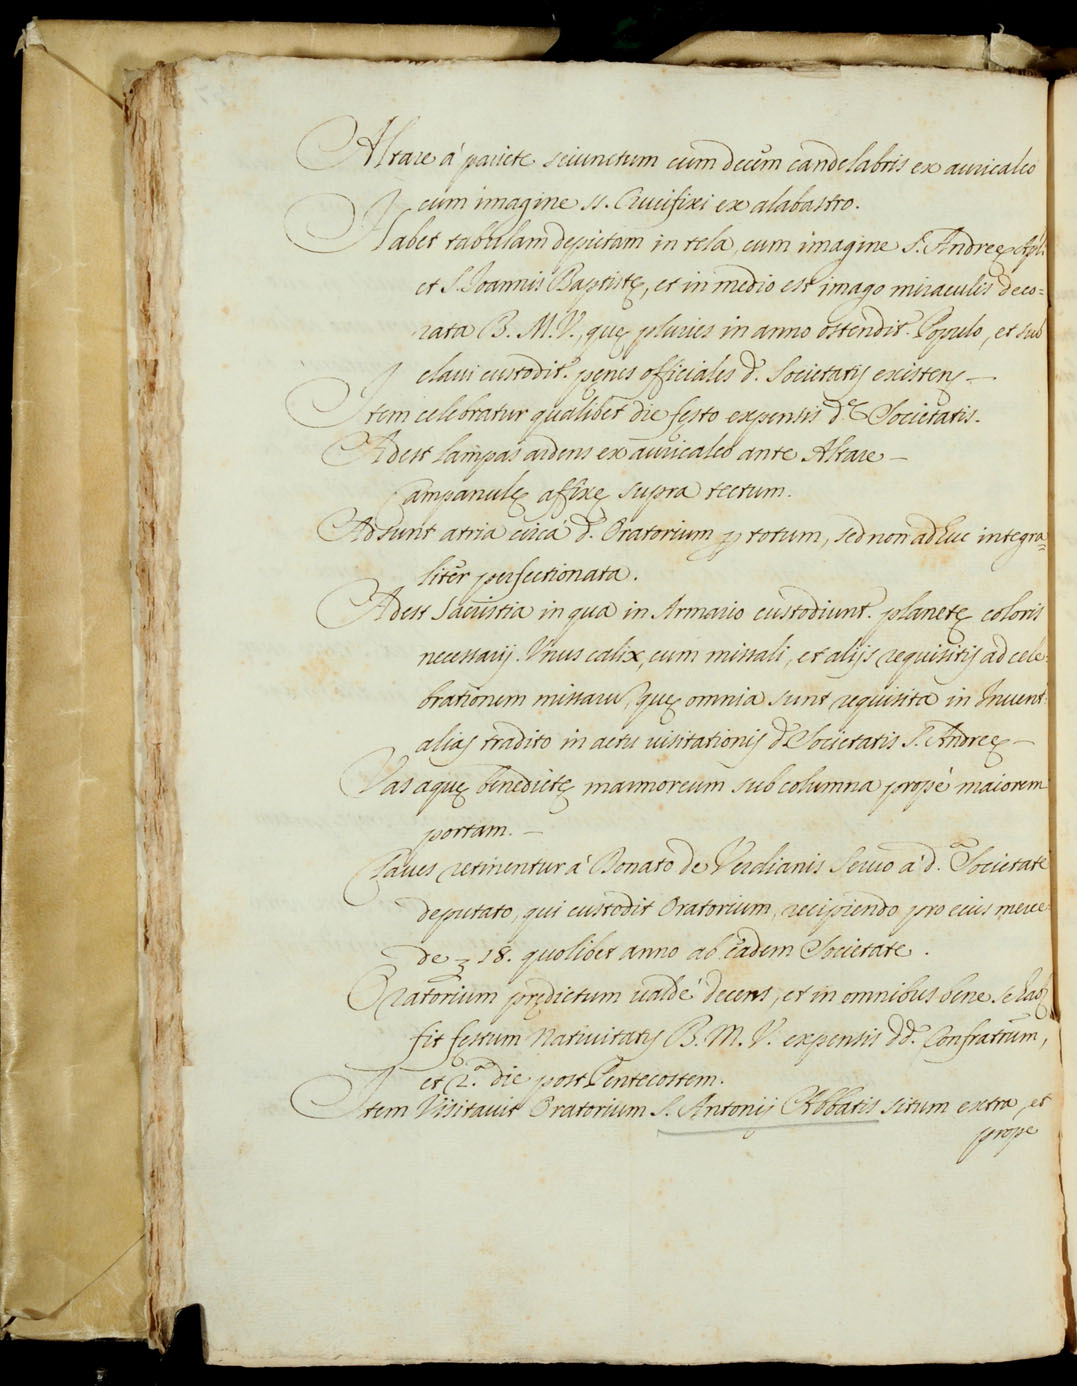 Altare à pariete seiunctum cum decem candelabris ex auricalco
cum imagine SS. Crucifixi ex alabastro.
Habet tabulam depictam in tela, cum imagine S. Andreę Apli.
et S. Ioannis Baptistę, et in medio est imago miraculis deco=
rata B. M. V., quę pluries in anno ostendit.r Populo, et sub
claui custodit.r penes officiales d. Societatis existens –
Item celebratur qualibet die festo expensis d.e Societatis.
Adest lampas ardens ex auricalco ante Altare –
Campanulę affixę supra tectum.
Adsunt atria circa d. Oratorium p totum, sed non adhuc integra=
liter perfectionata.
Adest Sacristia in qua in Armario custodiunt.r planetę coloris
necessarij. Vnus calix, cum missali, et alijs requisitis ad cele
brationem missaru, quę omnia sunt requisita in Inuent.
alias tradito in actu uisitationis d. Societatis S. Andreę –
Vas aquę benedictę marmoreum sub columna propè maiorem
portam. –
Claues retinentur à Donato de Verdianis Seruo à d.a Societate
deputato, qui custodit Oratorium, recipiendo pro eius merce
de 18. quolibet anno ab eadem Societate.
Oratorium prędictum ualdè decens, et in omnibus bene se hab.
fit festum Natiuitatis B. M. V. expensis dd. Confratrum,
et 2.a die post Pentecostem.
Item Visitauit Oratorium S. Antonij Abbatis situm extra, et
prope